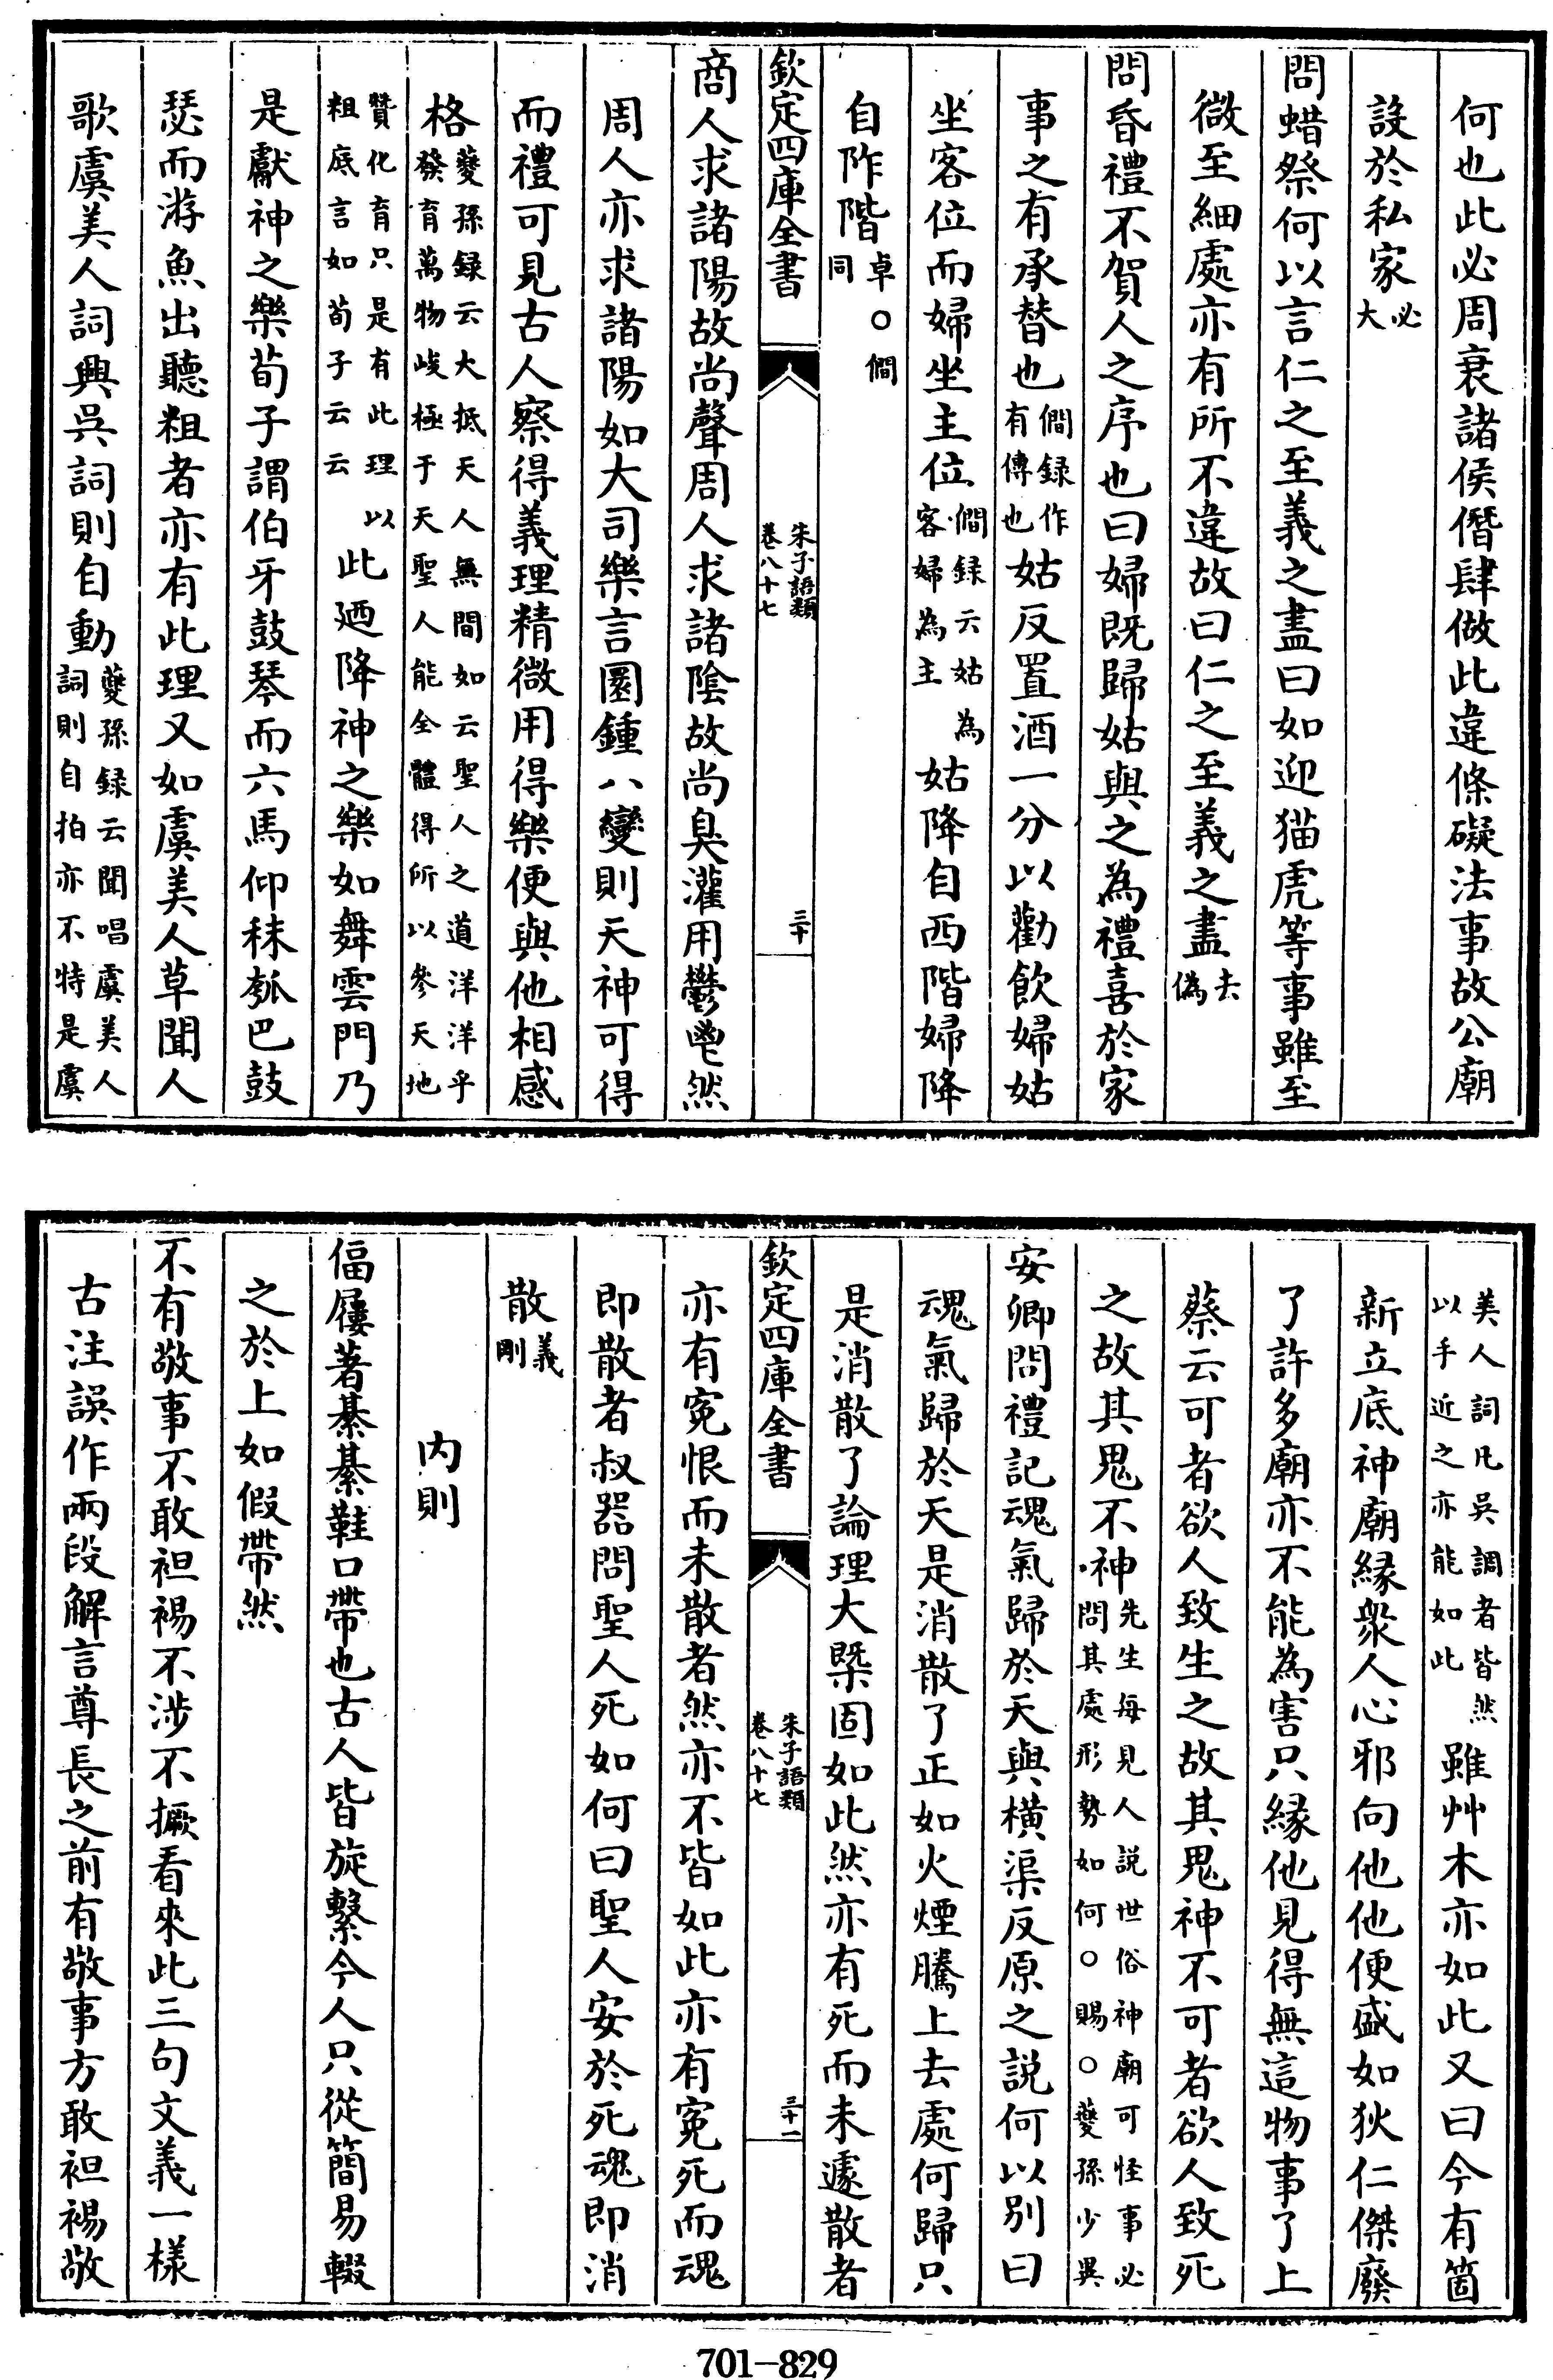 何也此必周衰諸侯僭肆做此違條礙法事故公廟
設於私家必大
問蜡祭何以言仁之至義之盡曰如迎猫虎等事雖至
微至細處亦有所不違故曰仁之至義之盡去偽
問昏禮不賀人之序也曰婦既歸姑與之為禮喜於家
事之有承替也僩録作有傳也姑反置酒一分以勸飲婦姑
坐客位而婦坐主位僩録云姑為客婦為主姑降自西階婦降
自阼階卓同○僩
欽定四庫全書
朱子語類
卷八十七
三十
商人求諸陽故尚聲周人求諸陰故尚臭灌用鬱鬯然
周人亦求諸陽如大司樂言圜鍾八變則天神可得
而禮可見古人察得義理精微用得樂便與他相感
格夔孫録云大抵天人無間如云聖人之道洋洋乎發育萬物峻極于天聖人能全體得所以參天地
贊化育只是有此理以粗底言如荀子云云此廼降神之樂如舞雲門乃
是獻神之樂荀子謂伯牙鼓琴而六馬仰秣瓠巴鼓
瑟而游魚出聽粗者亦有此理又如虞美人草聞人
歌虞美人詞與吳詞則自動夔孫録云聞唱虞美人詞則自拍亦不特是虞
美人詞凡吳調者皆然以手近之亦能如此雖艸木亦如此又曰今有箇
新立底神廟縁衆人心邪向他他便盛如狄仁傑廢
了許多廟亦不能為害只縁他見得無這物事了上
蔡云可者欲人致生之故其鬼神不可者欲人致死
之故其鬼不神先生每見人説世俗神廟可怪事必問其處形勢如何○賜○夔孫少異
安卿問禮記魂氣歸於天與橫渠反原之説何以别曰
魂氣歸於天是消散了正如火煙騰上去處何歸只
是消散了論理大槩固如此然亦有死而未遽散者
欽定四庫全書
朱子語類
卷八十七
三十一
亦有寃恨而未散者然亦不皆如此亦有寃死而魂
即散者叔器問聖人死如何曰聖人安於死魂即消
散義剛
内則
偪屨著綦綦鞋口帶也古人皆旋繫今人只從簡易輟
之於上如假帶然
不有敬事不敢袒裼不涉不撅看來此三句文義一樣
古注誤作兩段解言尊長之前有敬事方敢袒裼敬
701-829